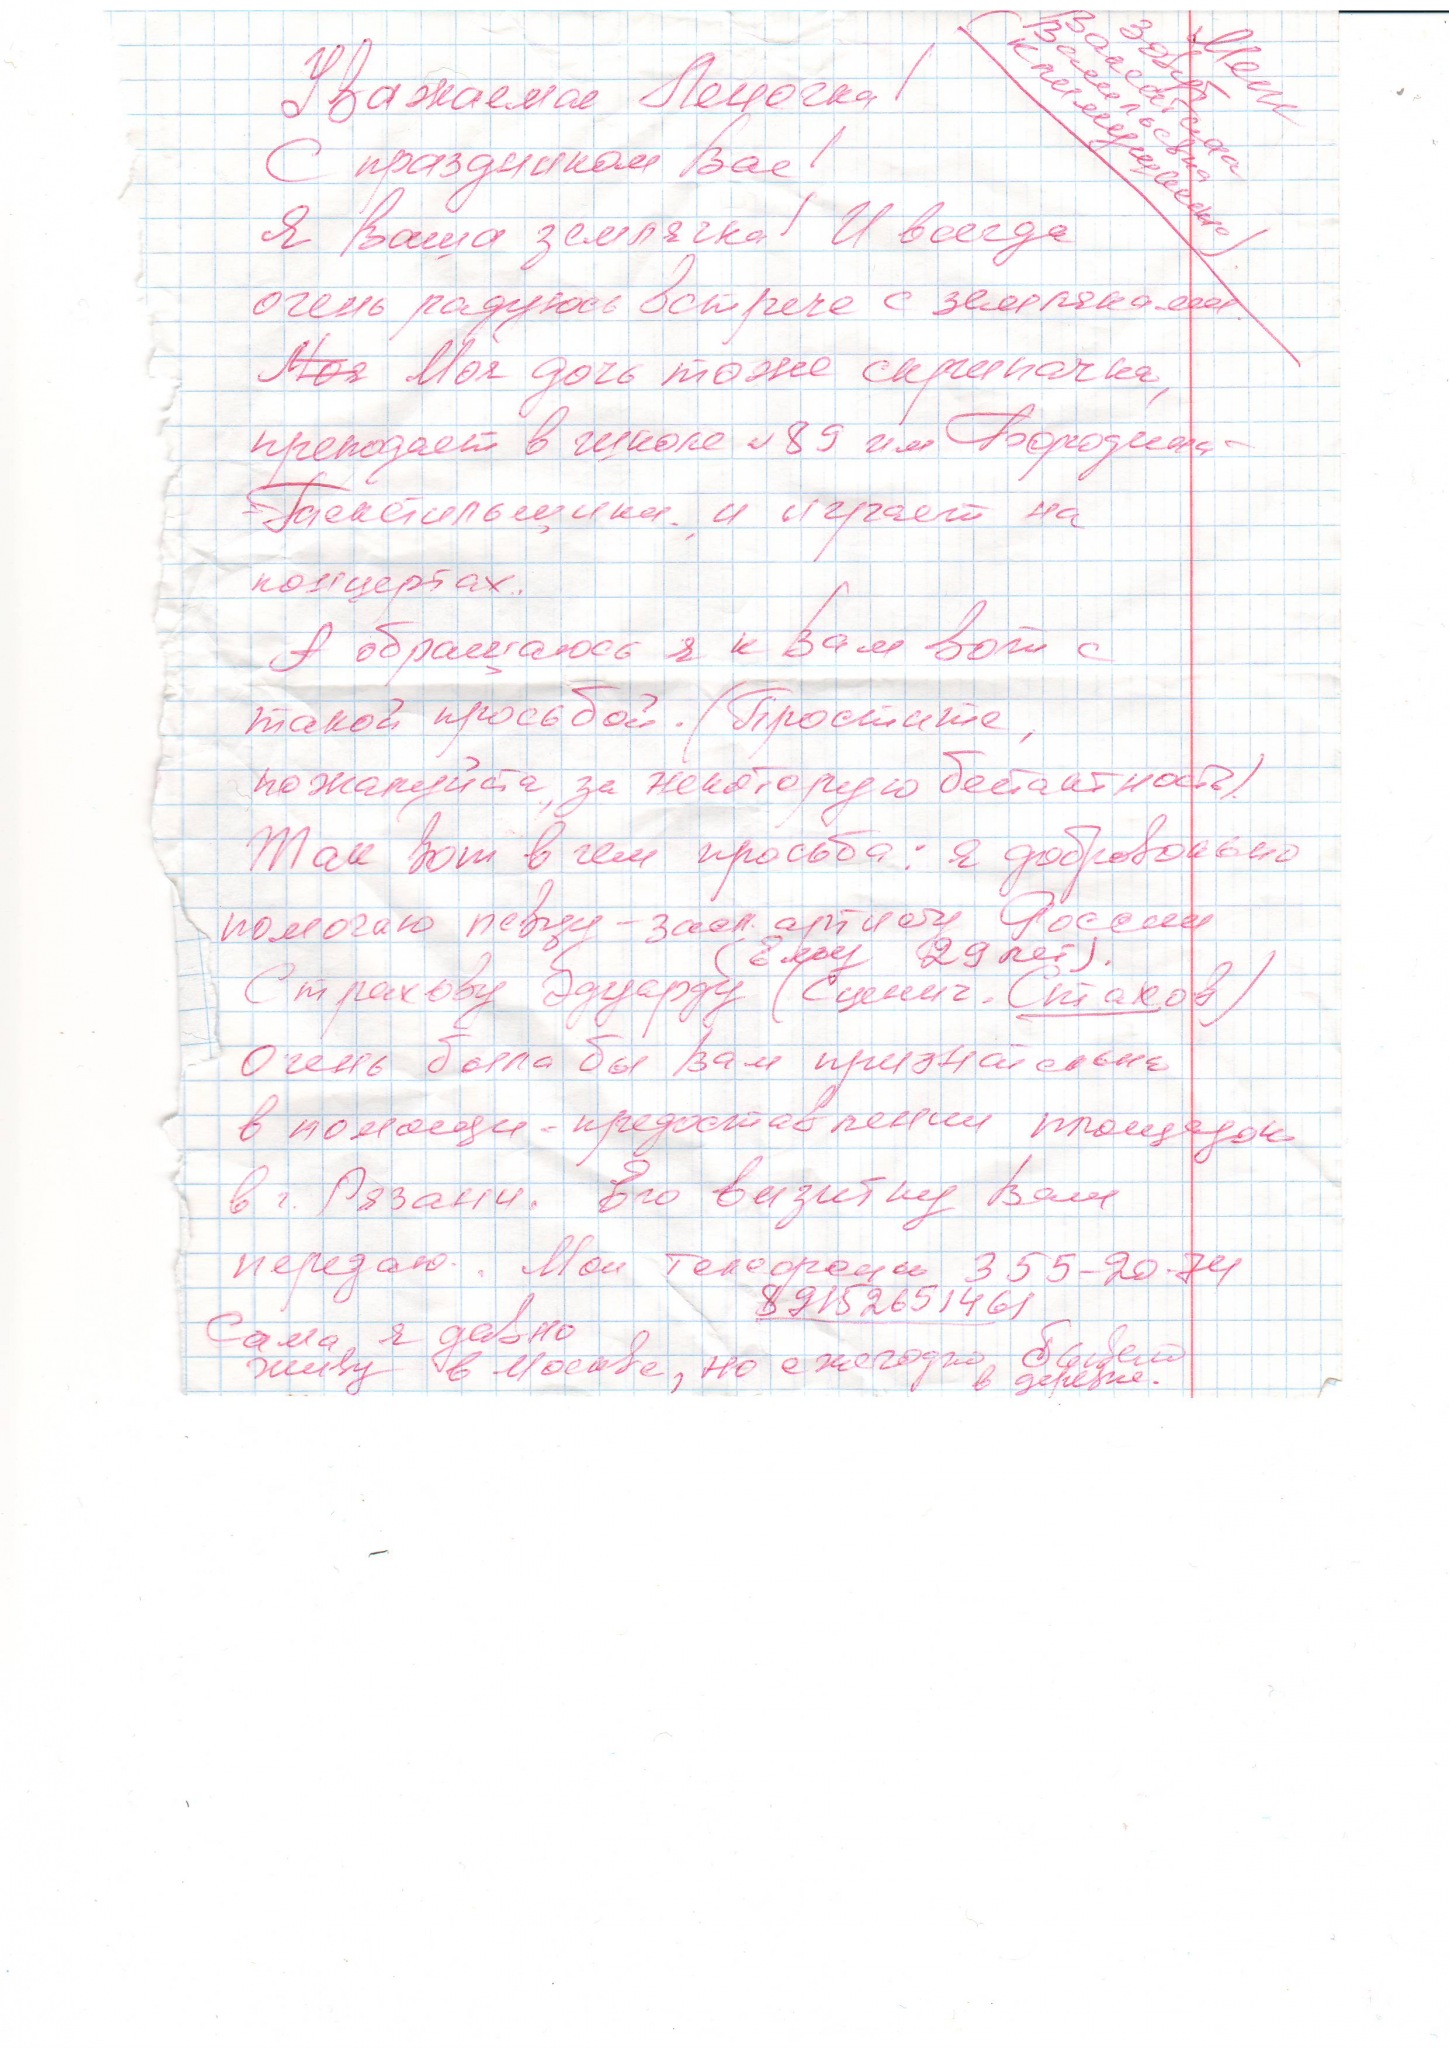 Уважаемая Леночка!
С праздником Вас!
Я Ваша землячка! И всегда
очень радуюсь встрече с земляками.
Моя Моя дочь тоже скрипачка,
преподает в школе №89 им Бородина-
-Текстильщики, и играет на
концертах.
А обращаюсь я к Вам вот с
такой просьбой. (Простите,
пожалуйста, за некоторую бестактность).
Так вот в чем просьба: я добровольно
помогаю певцу-засл. артисту России
(Ему 29 лет).
Страхову Эдуарду (Сценич. Стахов)
Очень была бы Вам признательна
в помощи-предоставлении площадок
в г. Рязани. Его визитку Вам
передаю. Мои телефоны 355-20-74
89152651461
Сама я давно
живу в Москве, но ежегодно бываю
в деревне.
Меня
зовут
Валентина